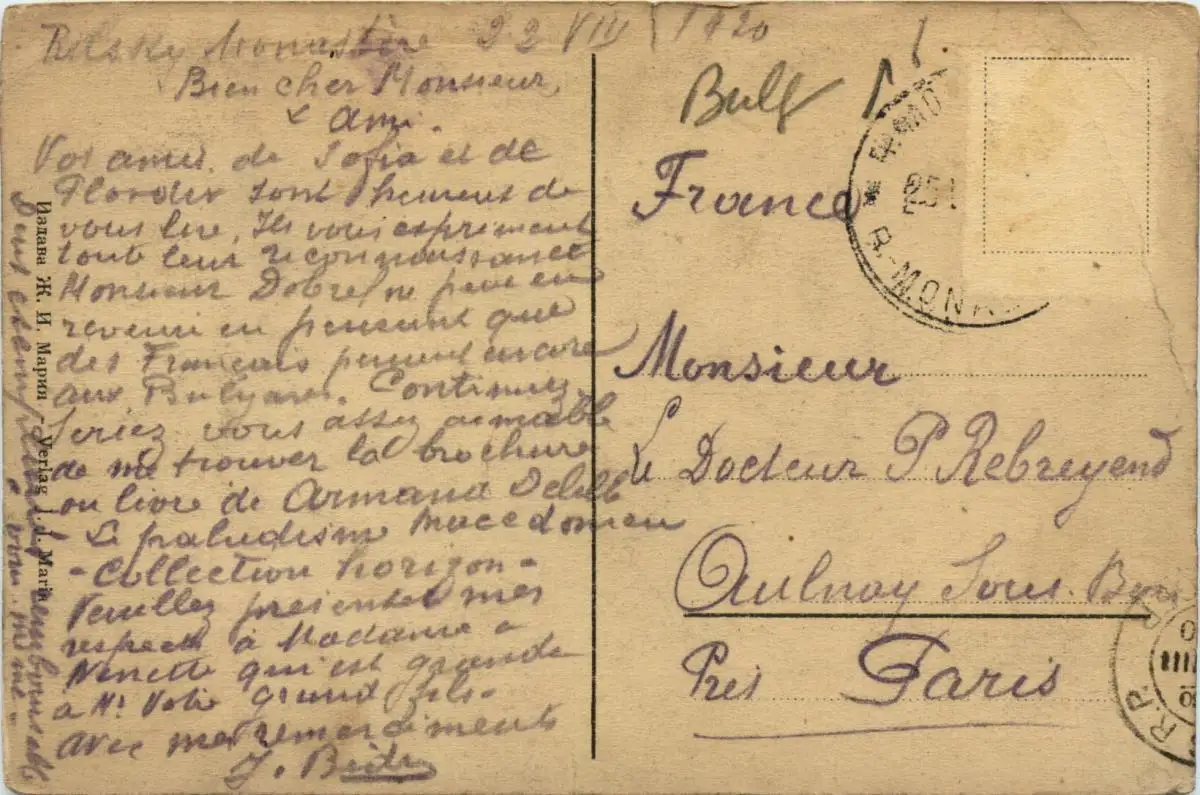 Rilsky Monastère 22 VIII 1920
Bien cher Monsieur
& ami.
Vos amis de Sofia et de
sont heureux de
vous lire, Ils vous expriment
toute leur reconnaissance
Monsieur Dobref ne peut en
revenir en pensant que
des Français pensent encore
aux Bulgares. Continuez.
Seriez vous assez aimable
de me trouver la brochure
ou livre de Armand Delille
Le paludisme Macedonien
- Collection horizon -
Veuillez presenter mes
respects à Madame a
Ninette qui est grande
à Mr Votre grand fils -
avec mes remerciments
J.
Deux exemplaires
vous même -
Издава Ж. И. Марин. - Verlag J. I. Marin
Bulg
France
Monsieur
Le Docteur P Rebreyend
Aulnay Sous. Bois
Près Paris
R.-MON
25
R.P.